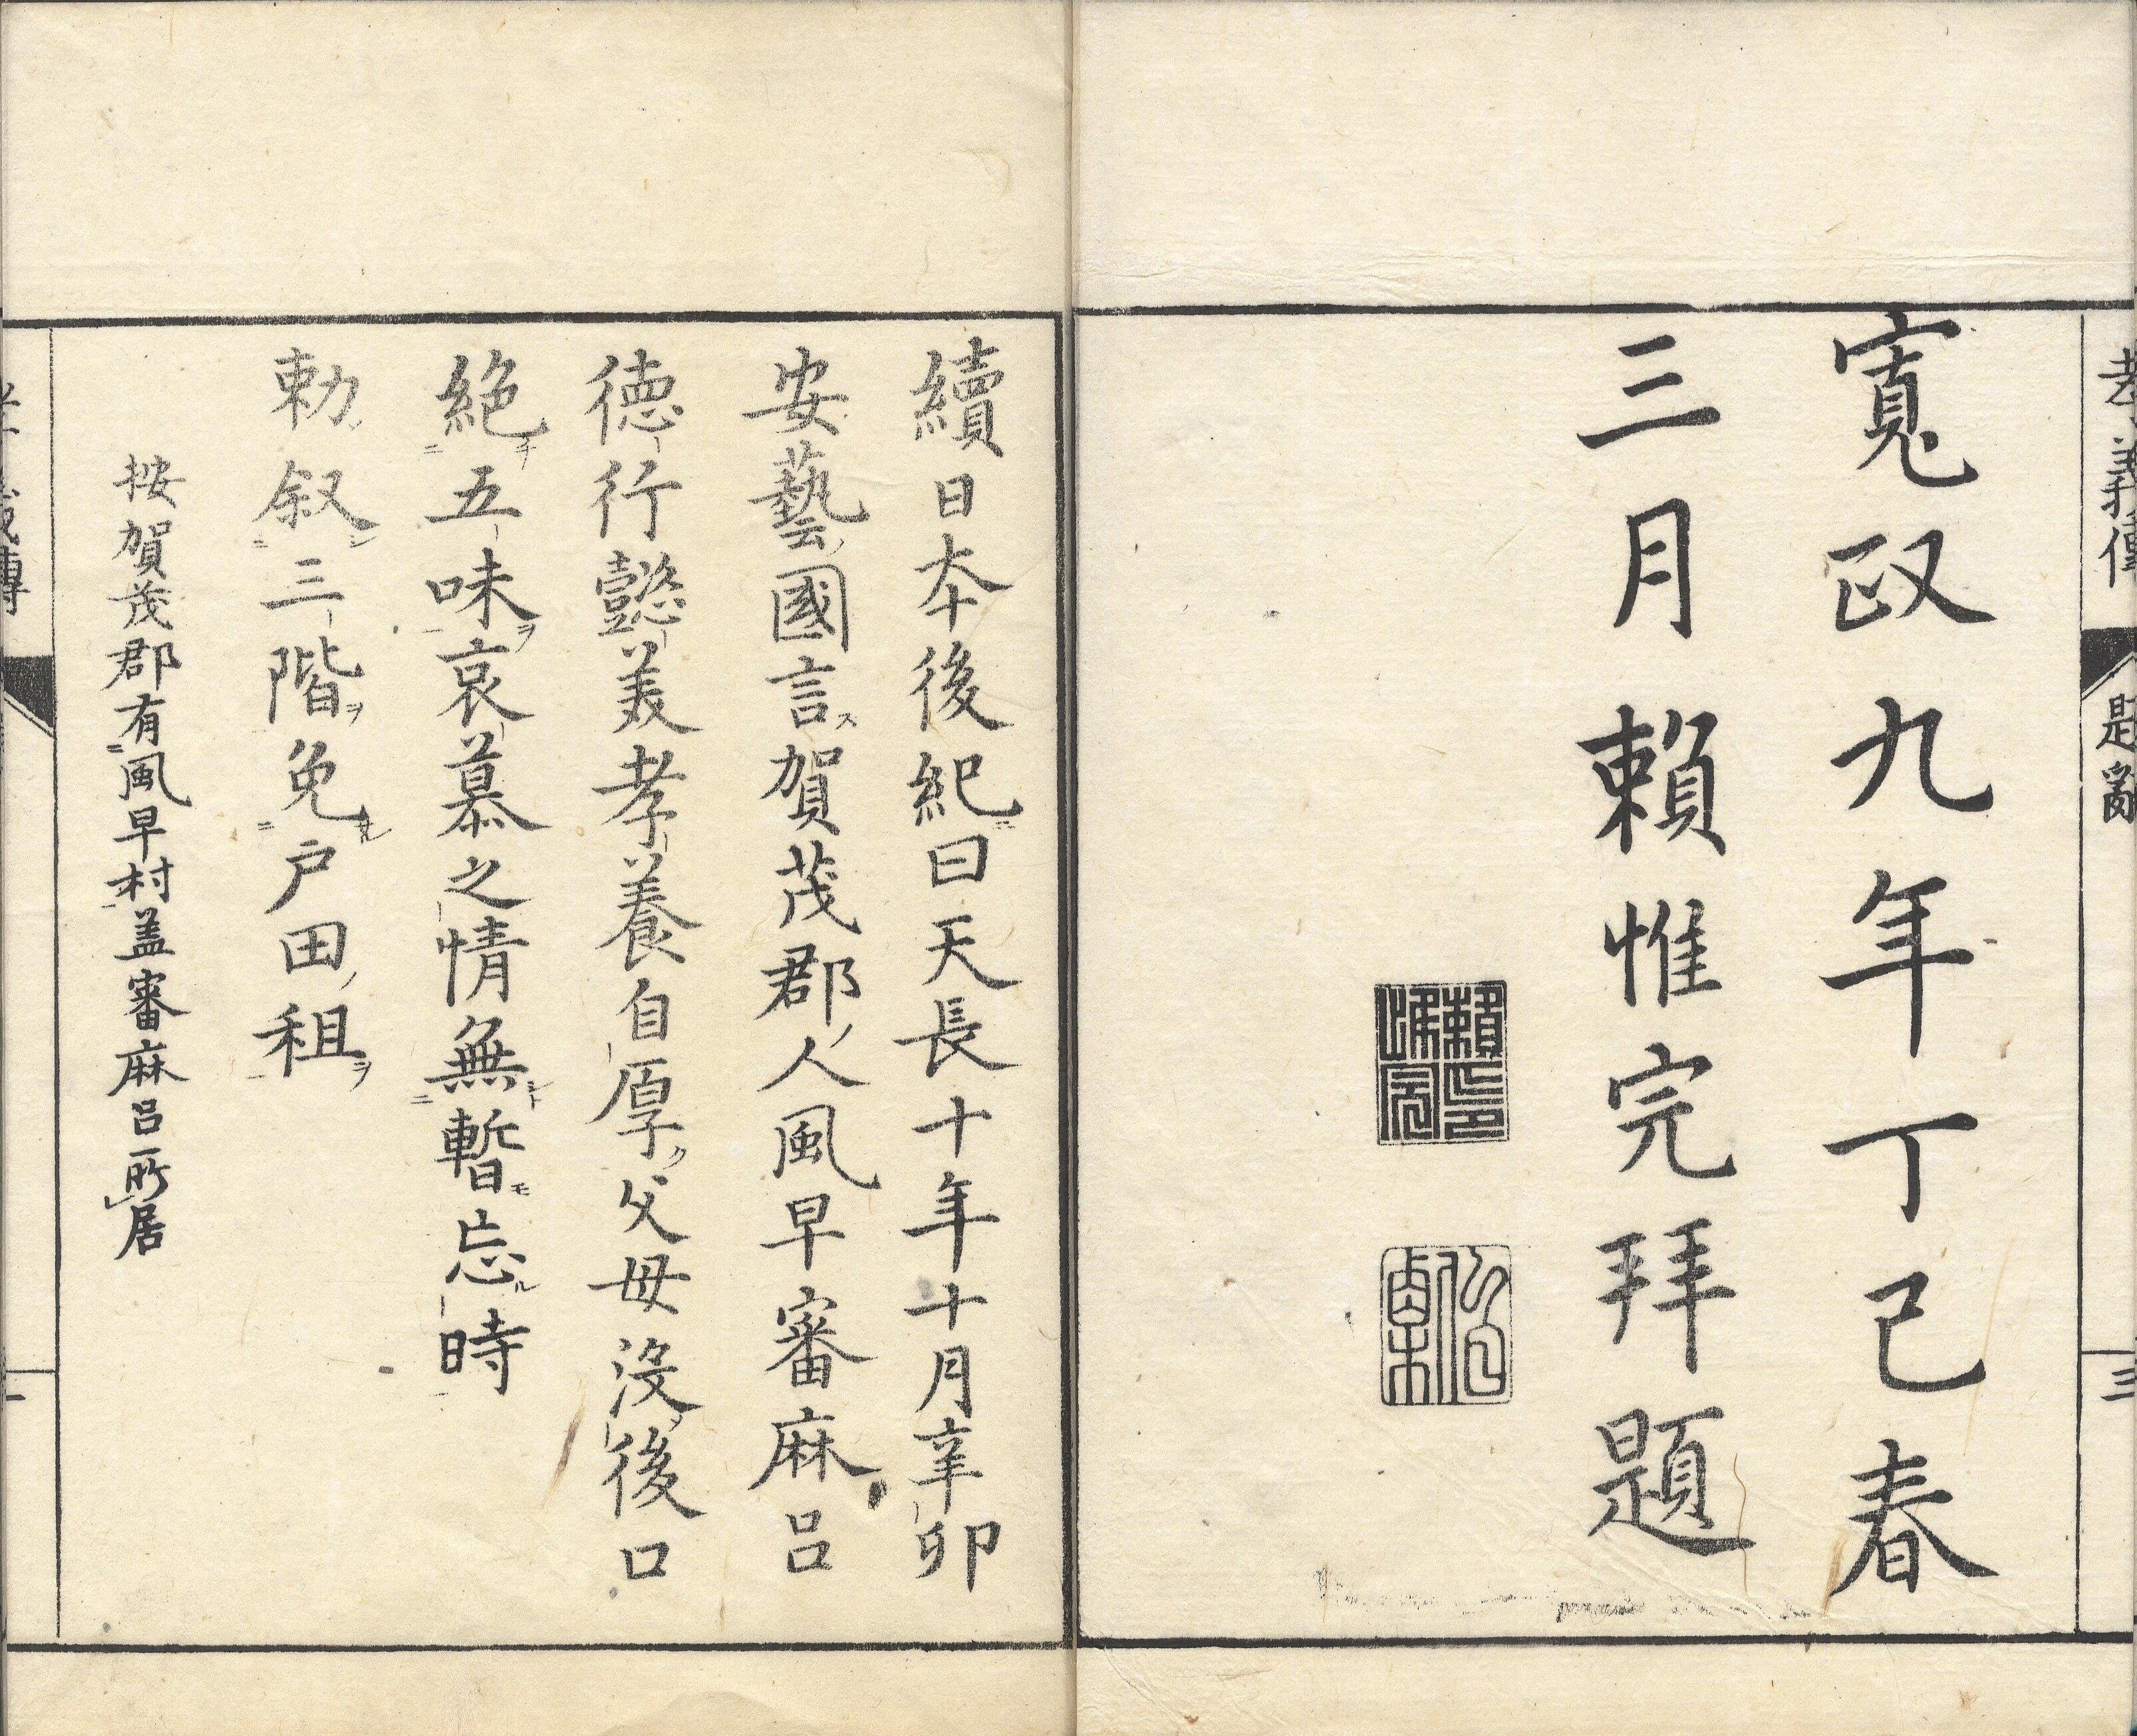 孝義傳
題辭
三
寬政九年丁巳春
三月賴惟完拜題
續日本後紀ニ曰天長十年十月辛卯
安藝ノ國言ス賀茂郡ノ人風早審麻呂
德行懿美孝養自厚ク父母沒後口
絶チ五味ヲ哀慕之情無シト暫モ忘ル時
勅シテ叙シ三階ヲ免ル戸田ノ租ヲ
按賀茂郡有風早村盖審麻呂所居
孝義傳
一